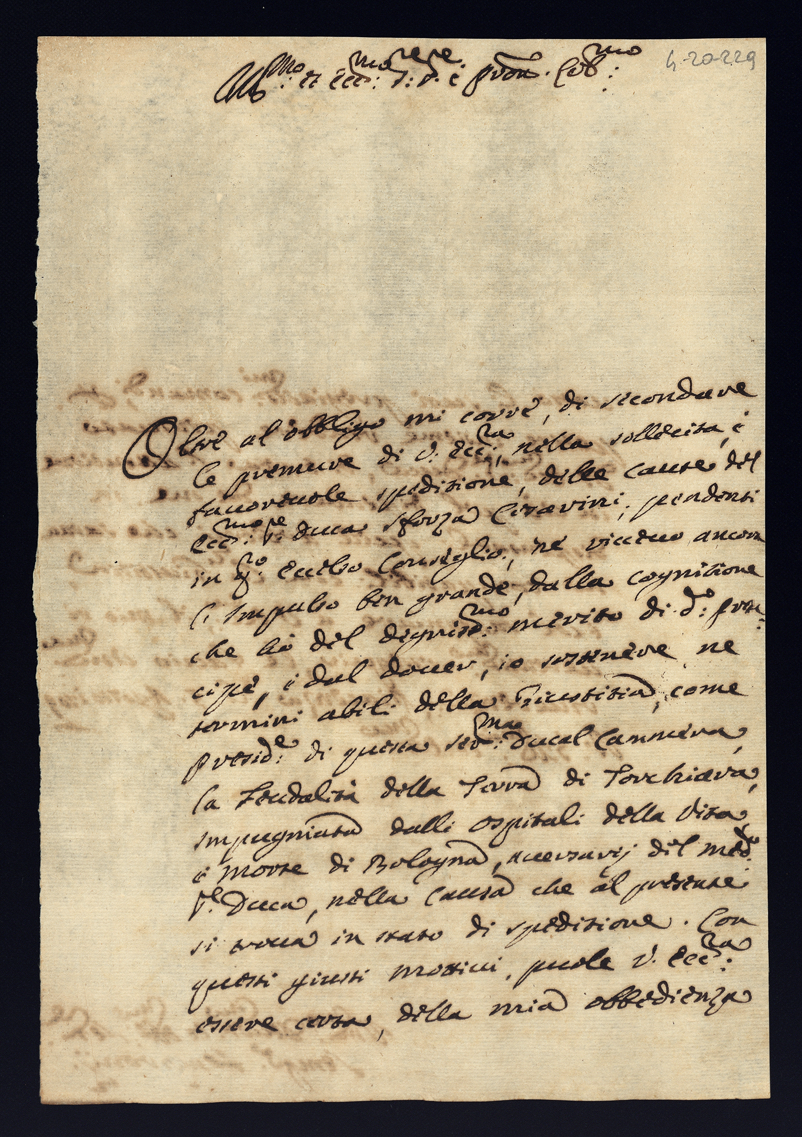 Ill.mo et Ecc.mo S.re S.re e Pron. Col.mo
4-20-229
Oltre al obbligo mi corre, di secondare
le premure di V. Ecc.za, nella sollecita, e
fauoreuole speditione, delle cause, del
Ecc.mo S.re Duca Sforza Cesarini, pendenti
in q.to Eccelso Consiglio, ne riceuo ancora
l'impulso ben grande, dalla cognitione
che hò del dignis.mo merito di d.o Prin:
cipe, e dal douer, io sostenere ne
termini abili della Giustitia, come
Presid.e di questa Ser.ma Ducal Cammera,
la Feudalità della Terra di Torchiara,
impugniata dalli Ospitali della Vita,
e Morte di Bologna, auersarij del med.o
S.re Duca, nella Causa che al presente
si troua in stato di speditione. Con
questi giusti mottiui, puole V. Ecc.za
essere certa, della mia obbedienza